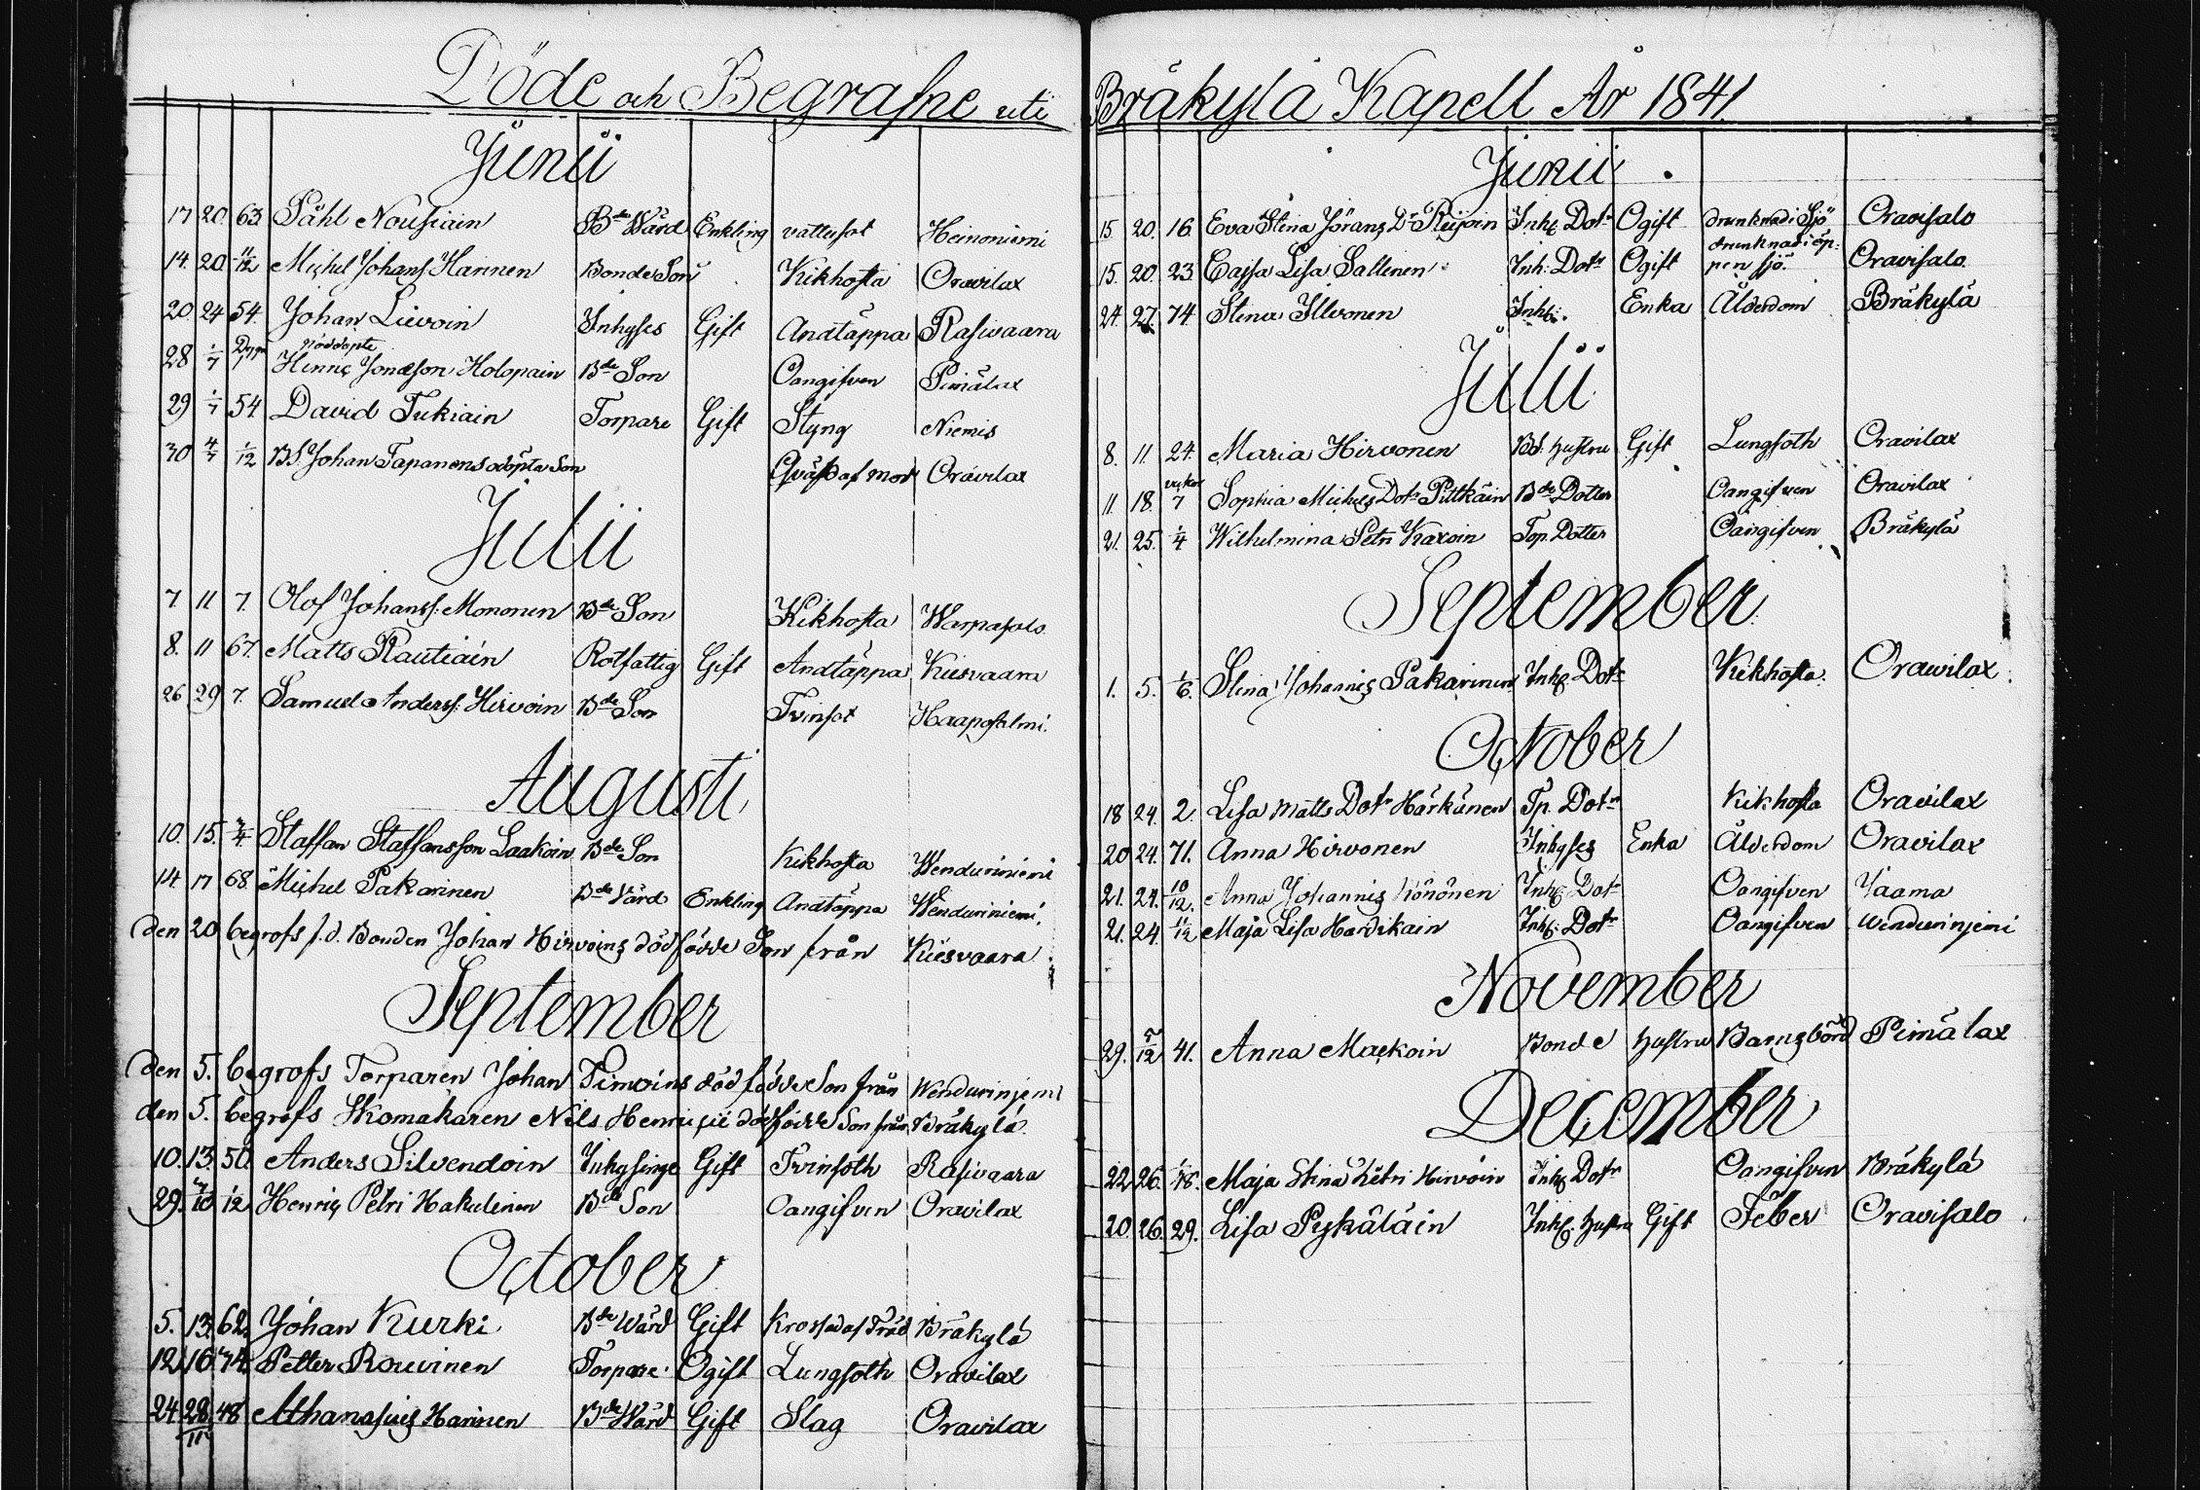 Döde och Begrafne uti
Junii
17 20 63 Påhl Nousiain Bde Wärd Enkling vattusot Heinoniemi
14. 20 11/12 Michel Johanss Harinen Bonde Son Kikhosta Oravilax
20 24 54. Johan Liivoin Inhyses Gift Andtäppa Rasivaara
nöddöpte
28 1/7 Dygn 1 Henric Jonasson Holopain Bde Son Oangifven Pimälax
29 1/7 54 David Tukiain Torpare Gift Styng Niemis
30 4/7 1/12 BS. Johan Tapanens odöpta Son Qväfd af mod Oravilax
Julii
7 11 7. Olof Johanss: Mononen Bde Son Kikhosta Warpasalo
8. 11 67. Matts Rautiain Rotfattig Gift Andtäppa Kiesvaara
26 29 7. Samuel Anderss: Hirvoin Bde Son Tvinsot Haapasalmi.
Augusti
10. 15. 3/4 Staffan Staffansson Laakoin Bde Son Kikhosta Wenduriniemi
14 17 68 Michel Pakarinen Bde Wärd Enkling Andtäppa Wenduriniemi.
den 20 begrofs f.d. Bonden Johan Hirvoins dödfödde Son från Kiesvaara
September
den 5. begrofs Torparen Johan Timoins dödfödde Son från Wendurinjemi
den 5. begrofs Skomakaren Nils Henricii dödfödde Son från Bräkylä
10. 13. 50. Anders Silvendoin Inhysinge Gift Tvinsoth Rasivaara
29. 4/10 1/12 Henric Petri Hakulinen Bde Son Oangifven Oravilax
October
5. 13. 62. Johan Kurki Bde Wärd Gift Krossad af Träd Bräkylä
12 16 74 Petter Rouvinen Torpare Ogift Lungsoth Oravilax
24 28/11 48 Athanasius Harinen Bde Wärd Gift Slag Oravilax
Bräkylä Kapell År 1841.
Junii
15 20. 16 Eva Stina Jörans Dr Reijoin Inhs Dotr Ogift drunknad i Sjö Oravisalo
15. 20. 23 Cajsa Lisa Sallinen Inh: Dotr Ogift drunknad i öppen sjö. Oravisalo
24. 27. 74 Stina Illvonen Inhs: Enka Ålderdom Bräkylä
Julii
8. 11. 24. Maria Hirvonen Bd. hustru Gift Lungsoth Oravilax
11 18. veckor 7 Sophia Michels Dotr Pittkäin Bde Dotter Oangifven Oravilax
21. 25. 1/4 Wilhelmina Petri Karoin Top. Dotter Oangifven Bräkylä
September
1. 5. 1/6. Stina Johannis Pakarinen Inhs Dotr Kikhosta Oravilax
October
18 24. 2. Lisa Matts Dotr Härkänen Tp. Dotr Kikhosta Oravilax
20 24. 71. Anna Hirvonen Inhyses Enka Ålderdom Oravilax
21. 24. 10/12. Anna Johannis Könönen Inhs Dotr Oangifven Jaama
21. 24. 11/12 Maja Lisa Hardikain Inhs: Dotr Oangifven Wendurinjemi
November
29. 5/12 41. Anna Mackoin Bonde hustru Barnsbörd Pimälax
December
22 26. Maja Stina Petri Hirvoin Inhs Dotr Oangifven Bräkylä
20. 26. 29. Lisa Pykäläin Inhs. hustru Gift Feber Oravisalo